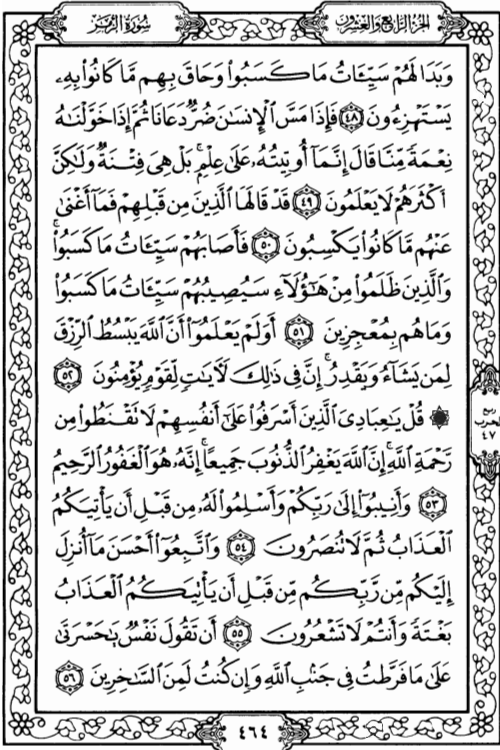 الجزء الرابع والعشرون
سورة الزمر
وَبَدَا لَهُمْ سَيِّـَٔاتُ مَا كَسَبُوا۟ وَحَاقَ بِهِم مَّا كَانُوا۟ بِهِۦ
يَسْتَهْزِءُونَ ٤٨ فَإِذَا مَسَّ ٱلْإِنسَٰنَ ضُرٌّ دَعَانَا ثُمَّ إِذَا خَوَّلْنَٰهُ
نِعْمَةً مِّنَّا قَالَ إِنَّمَآ أُوتِيتُهُۥ عَلَىٰ عِلْمٍۭ ۚ بَلْ هِىَ فِتْنَةٌ وَلَٰكِنَّ
أَكْثَرَهُمْ لَا يَعْلَمُونَ ٤٩ قَدْ قَالَهَا ٱلَّذِينَ مِن قَبْلِهِمْ فَمَآ أَغْنَىٰ
عَنْهُم مَّا كَانُوا۟ يَكْسِبُونَ ٥٠ فَأَصَابَهُمْ سَيِّـَٔاتُ مَا كَسَبُوا۟ ۚ
وَٱلَّذِينَ ظَلَمُوا۟ مِنْ هَٰٓؤُلَآءِ سَيُصِيبُهُمْ سَيِّـَٔاتُ مَا كَسَبُوا۟
وَمَا هُم بِمُعْجِزِينَ ٥١ أَوَلَمْ يَعْلَمُوٓا۟ أَنَّ ٱللَّهَ يَبْسُطُ ٱلرِّزْقَ
لِمَن يَشَآءُ وَيَقْدِرُ ۚ إِنَّ فِى ذَٰلِكَ لَءَايَٰتٍ لِّقَوْمٍ يُؤْمِنُونَ ٥٢
۞ قُلْ يَٰعِبَادِىَ ٱلَّذِينَ أَسْرَفُوا۟ عَلَىٰٓ أَنفُسِهِمْ لَا تَقْنَطُوا۟ مِن
رَّحْمَةِ ٱللَّهِ ۚ إِنَّ ٱللَّهَ يَغْفِرُ ٱلذُّنُوبَ جَمِيعًا ۚ إِنَّهُۥ هُوَ ٱلْغَفُورُ ٱلرَّحِيمُ
٥٣ وَأَنِيبُوٓا۟ إِلَىٰ رَبِّكُمْ وَأَسْلِمُوا۟ لَهُۥ مِن قَبْلِ أَن يَأْتِيَكُمُ
ٱلْعَذَابُ ثُمَّ لَا تُنصَرُونَ ٥٤ وَٱتَّبِعُوٓا۟ أَحْسَنَ مَآ أُنزِلَ
إِلَيْكُم مِّن رَّبِّكُم مِّن قَبْلِ أَن يَأْتِيَكُمُ ٱلْعَذَابُ
بَغْتَةً وَأَنتُمْ لَا تَشْعُرُونَ ٥٥ أَن تَقُولَ نَفْسٌ يَٰحَسْرَتَىٰ
عَلَىٰ مَا فَرَّطتُ فِى جَنۢبِ ٱللَّهِ وَإِن كُنتُ لَمِنَ ٱلسَّٰخِرِينَ ٥٦
ربع
الحزب
٤٧
٤٦٤